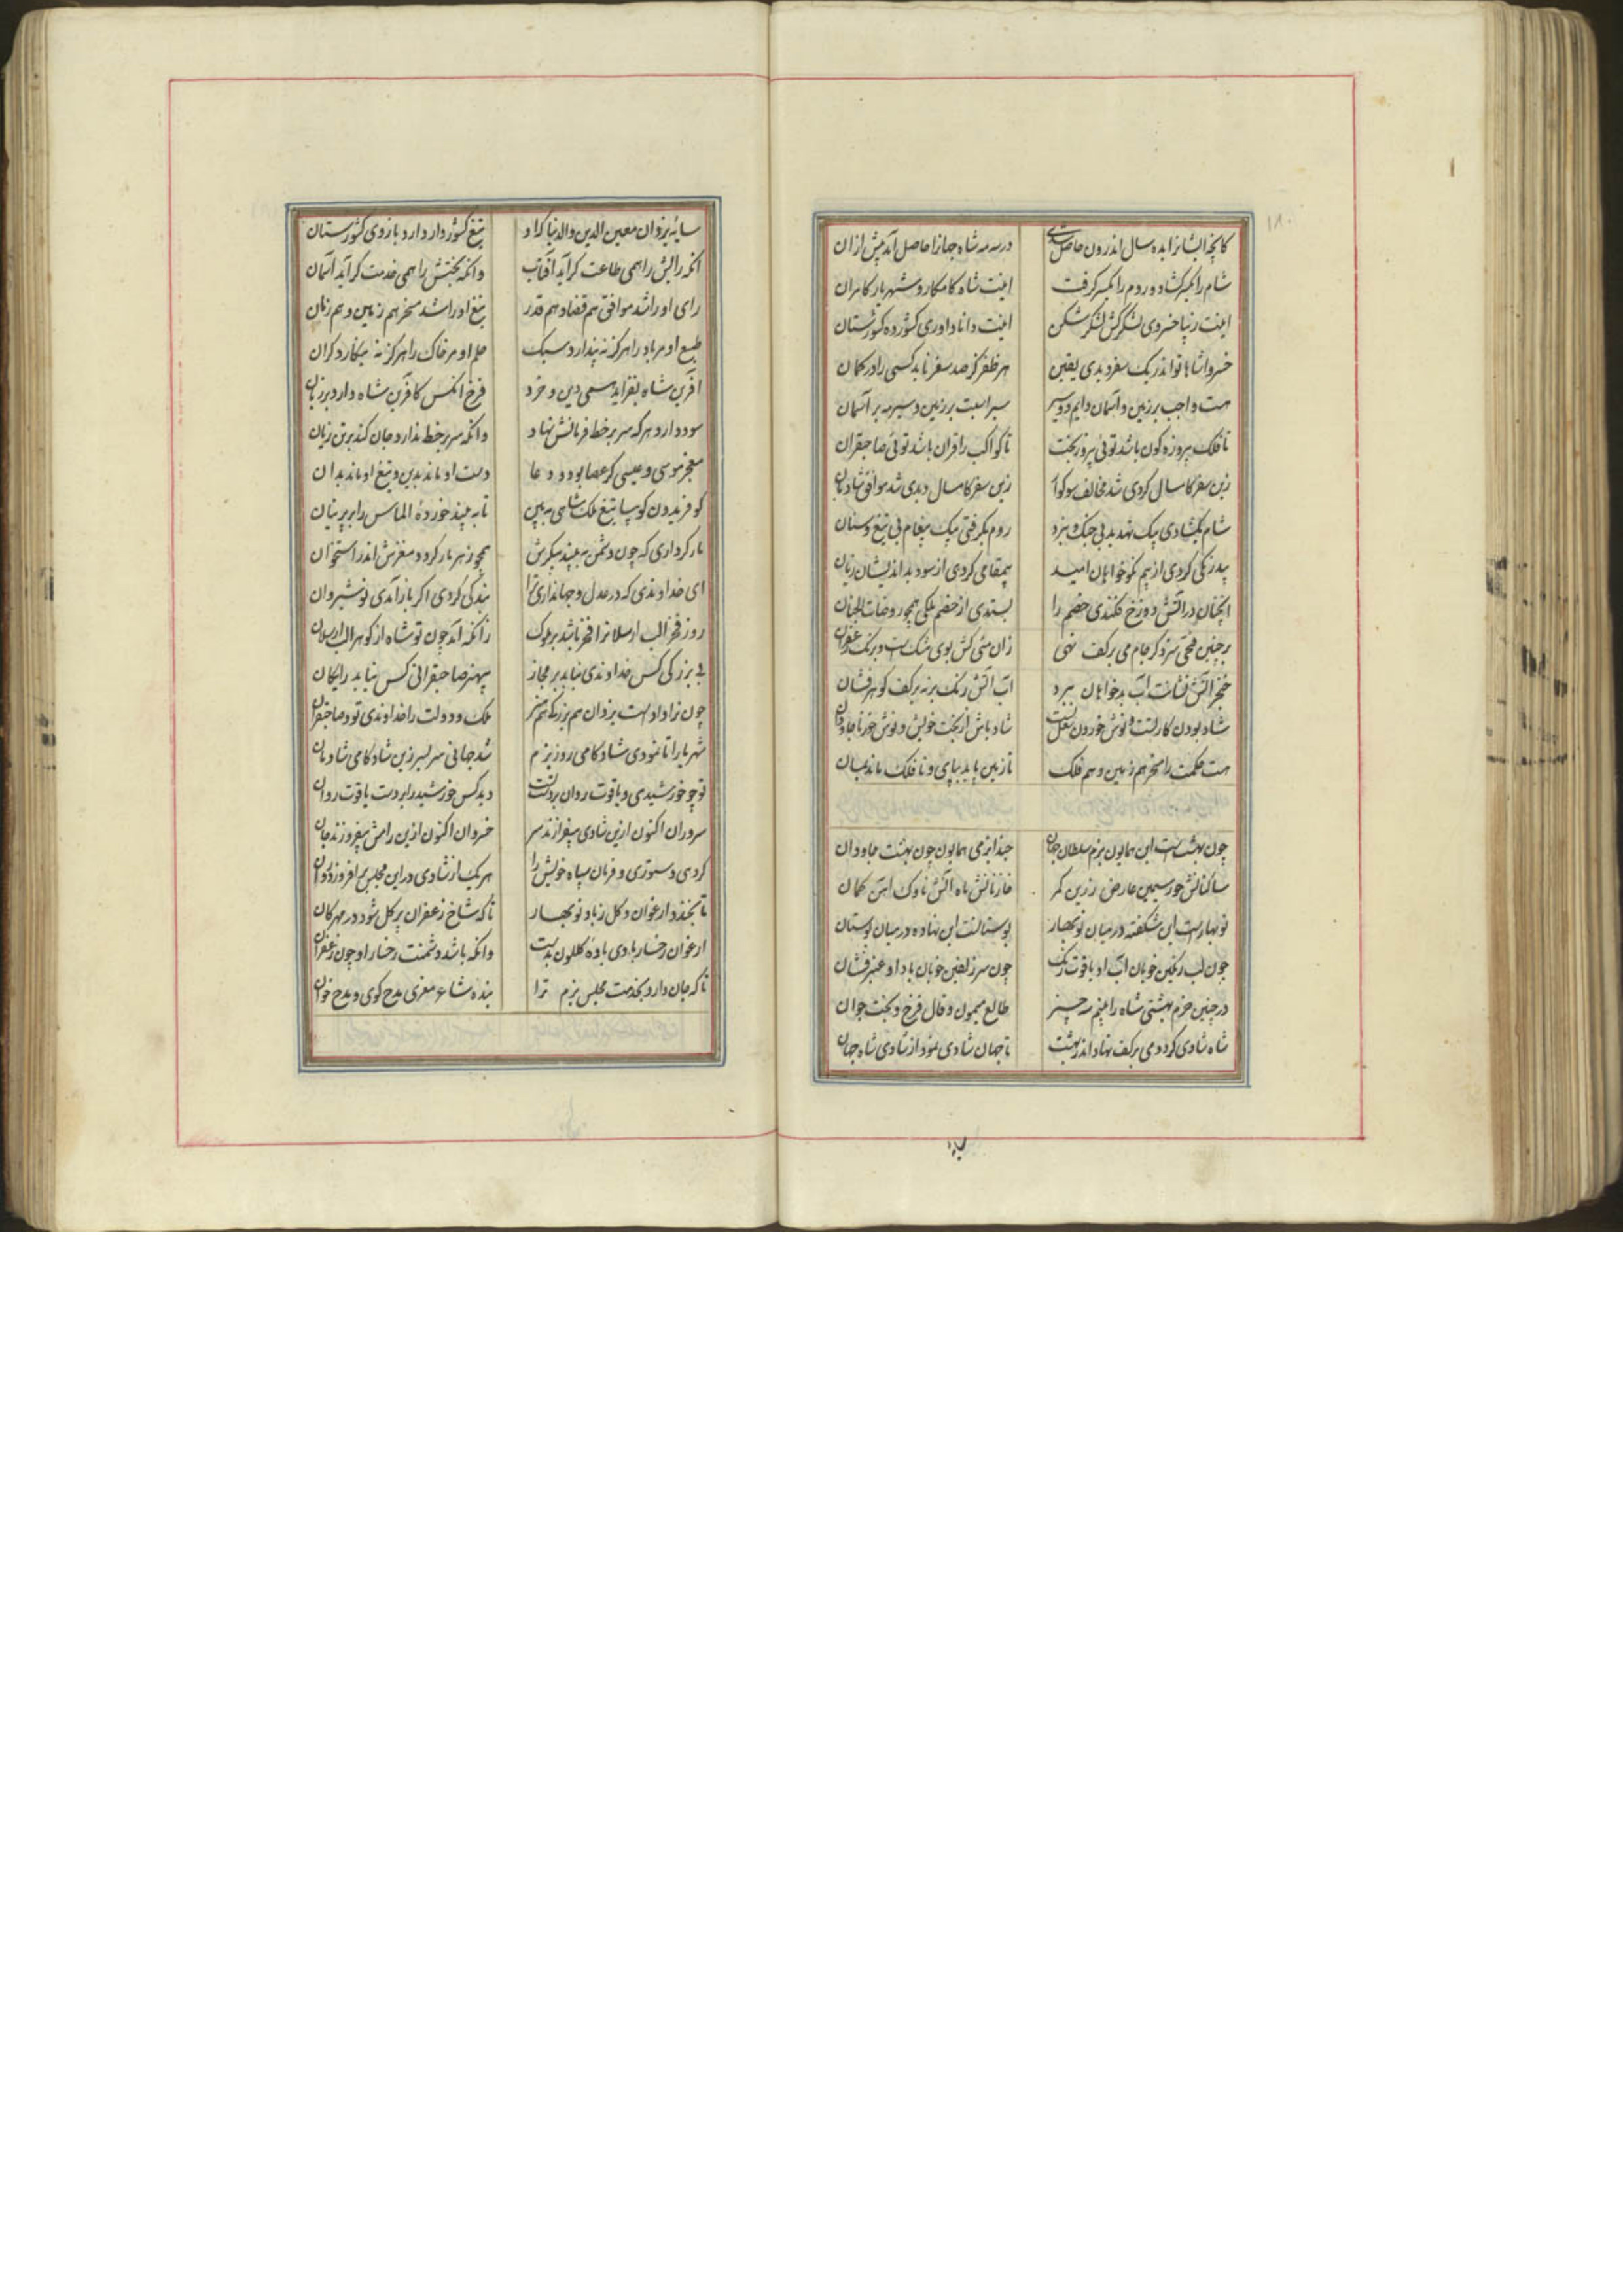 ۱۸۰
کانچه ایشانرا بده سال اندرون حاصل شدی
در سه مه شاه جهانرا حاصل آمد پیش ازان
شام را یکسر کشاد و روم را یکسر کرفت
اینت شاه کامکار و شهریار کامران
اینت زیبا خسروی لشکرکش لشکر شکن
اینت دانا داوری کشورده کشورستان
خسروا شاها تو اندر یک سفر دیدی یقین
هر ظفر کز صد سفر ناید کسی را در کمان
هست واجب بر زمین و آسمان دایم دو سیر
سیر اسبت بر زمین و سیر مه بر آسمان
تا فلک پیروزه کون باشد توئی پیروزبخت
تا کواکب را قران باشد توئی صاحبقران
زین سفر کامسال کردی شد مخالف سوکوار
زین سفر کامسال دیدی شد موافق شادمان
شام بکشادی بیک تهدید بی جنک و نبرد
روم بکرفتی بیک پیغام بی تیغ و سنان
بیدرنکی کردی از بیم نکوخواهان امید
بیمقامی کردی از سود بداندیشان زیان
آنچنان در آتش دوزخ فکندی خصم را
بستدی از خصم ملکی همچو روضات الجنان
بر چنین فتحی سزد کر جام می بر کف نهی
زان میی کش بوی مشک است و برنک زعفران
خنجر آتش فشانت آب بدخواهان ببرد
آب آتش رنک برنه بر کف کوهرفشان
شاد بودن کار تست و نوش خوردن شغل تست
شاد باش از بخت خویش و نوش خور تا جاودان
هست حکمت را مسخر هم زمین و هم فلک
تا زمین باید بپای و تا فلک ماند بمان
چون بهشت است این همایون بزم سلطان جهان
حبذا بزمی همایون چون بهشت جاودان
ساکنانش حور سیمین عارض زرین کمر
خازنانش ماه آتش ناوک آهن کمان
نوبهارست این شکفته در میان نوبهار
بوستانست این نهاده در میان بوستان
چون لب رنکین خوبان آب او یاقوت رنک
چون سر زلفین خوبان باد او عنبرفشان
در چنین خرم بهشتی شاه را بینم سه چیز
طالع میمون و فال فرخ و بخت جوان
شاه شادی کرد و می بر کف نهاد اندر بهشت
تا جهان شادی نمود از شادی شاه جهان
سایه یزدان معین الدین والدنیا که او
تیغ کشوردار دارد بازوی کشورستان
آنکه رایش را همی طاعت کر آید آفتاب
وانکه بختش را همی خدمت کر آید آسمان
رای او را شد موافق هم قضا و هم قدر
تیغ او را شد مسخر هم زمین و هم زمان
طبع او مر باد را هرکز نه پندارد سبک
حلم او مر خاک را هرکز نه نکارد کران
آفرین شاه بفزاید همی دین و خرد
فرخ آنکس کافرین شاه دارد بر زبان
سود دارد هر که سر بر خط فرمانش نهاد
وانکه سر بر خط ندارد جان کند بر تن زیان
معجز موسی و عیسی کر عصا بود و دعا
دست او ماند بدین و تیغ او ماند بدان
کو فریدون کو بیا تیغ ملکشاهی به بین
تا به بیند خورده الماس را بر پرنیان
مار کرداری که چون دشمن به بیند پیکرش
همچو زهر مار کردد مغزش اندر استخوان
ای خداوندی که در عدل و جهانداری ترا
بندکی کردی اکر باز آمدی نوشیروان
روز فخر الب ارسلانرا فخر باشد بر ملوک
زانکه آمد چون تو شاه از کوهر الب ارسلان
بی بزرکی کس خداوندی نیابد بر مجاز
بیهنر صاحبقرانی کس نیابد رایکان
چون ترا داد است یزدان هم بزرکی هم هنر
ملک و دولت را خداوندی تو و صاحبقران
شهریارا تا نمودی شادکامی روز بزم
شد جهانی سر بسر زین شادکامی شادمان
تو چو خورشیدی و یاقوت روان بر دست تست
دید کس خورشید را بر دست یاقوت روان
سروران اکنون ازین شادی بیفرازند سر
خسروان اکنون ازین رامش بیفروزند جان
کردی دستوری و فرمان سپاه خویش را
هر یک از شادی در این مجلس برافروزد روان
تا بخندد ارغوان و کل ز باد نوبهار
تا که شاخ زعفران پر کل شود در مهرکان
ارغوان رخسار بادی باده کلکون بدست
وانکه باشد دشمنت رخسار او چون زعفران
تا که جان دارد بخدمت مجلس بزم ترا
بنده شاعر معزی مدح کوی و مدح خوان